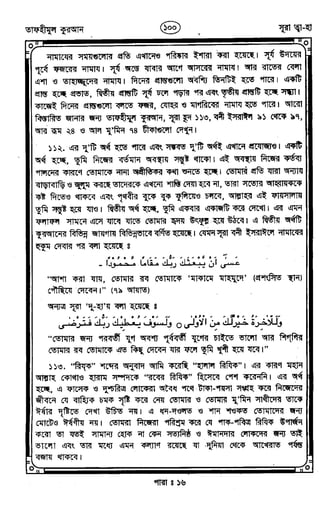 তাফহীমুল কুরআন
১০০
সূরা ত্বা-হা
নামাযের সময়গুলোর প্রতি এখানেও পরিষ্কার ইশারা করা হয়েছে। সূর্য উদয়ের
পূর্বে ফজরের নামায। সূর্য অস্ত যাবার আগে আসরের নামায। আর রাতের বেলা
এশা ও তাহাজ্জুদের নামায। দিনের প্রান্তগুলো অবশ্যি তিনটিই হতে পারে। একটি
প্রান্ত হচ্ছে প্রভাত, দ্বিতীয় প্রান্তটি সূর্য ঢলে পড়ার পর এবং তৃতীয় প্রান্তটি হচ্ছে সন্ধ্যা।
কাজেই দিনের প্রান্তগুলো বলতে ফজর, যোহর ও মাগরিবের নামায হতে পারে। আরো
বিস্তারিত জানার জন্য তাফহীমুল কুরআন, সূরা হূদ ১১৩, বনী ইসরাঈল ৯১ থেকে ৯৭,
আর রূম ২৪ ও আল মু'মিন ৭৪ টীকাগুলো দেখুন।
১১২. এর দু'টি অর্থ হতে পারে এবং সম্ভবত দু'টি অর্থই এখানে প্রযোজ্যও। একটি
অর্থ হচ্ছে, তুমি নিজের বর্তমান অবস্থায় সন্তুষ্ট থাকো। এই অবস্থায় নিজের কর্তব্য
পালনের কারণে তোমাকে নানা অপ্রীতিকর কথা শুনতে হচ্ছে। তোমার প্রতি যারা অন্যায়
বাড়াবাড়ি ও জুলুম করছে তাদেরকে এখনো শাস্তি দেয়া হবে না, তারা সত্যের আহবায়ককে
কষ্ট দিতেও থাকবে এবং পৃথিবীর বুকে বুক ফুলিয়েও চলবে, আল্লাহর এই ফায়সালায়
তুমি সন্তুষ্ট হয়ে যাও। দ্বিতীয় অর্থ হচ্ছে, তুমি একবার একাজটি করে দেখো। এর এমন
ফলাফল সামনে এসে যাবে যাতে তোমার হৃদয় উৎফুল্ল হয়ে উঠবে। এ দ্বিতীয় অর্থটি
কুরআনের বিভিন্ন জায়গায় বিভিন্নভাবে বর্ণিত হয়েছে। যেমন সূরা বনী ইসরাঈলে নামাযের
হুকুম দেবার পর বলা হয়েছে ঃ
عَسَىٰ أَنْ يَبْعَثَكَ رَبُّكَ مَقَامًا مَحْمُودًا ۔
"আশা করা যায়, তোমার রব তোমাকে 'মাকামে মাহমুদে' (প্রশংসিত স্থান)
পৌঁছিয়ে দেবেন।" (৭৯ আয়াত)
অন্যত্র সূরা 'দু-হা'য় বলা হয়েছে ঃ
وَلَلْآخِرَةُ خَيْرٌ لَكَ مِنَ الْأُولَىٰ ○ وَلَسَوْفَ يُعْطِيكَ رَبُّكَ فَتَرْضَىٰ
"তোমার জন্য পরবর্তী যুগ অবশ্যি পূর্ববর্তী যুগের চাইতে ভালো আর শিগগির
তোমার রব তোমাকে এত কিছু দেবেন যার ফলে তুমি খুশী হয়ে যাবে।"
১১৩. "রিযিক" শব্দের অনুবাদ আমি করেছি "হালাল রিযিক"। এর কারণ মহান
আল্লাহ কোথাও হারাম সম্পদকে "রবের রিযিক" হিসেবে পেশ করেননি। এর অর্থ
হচ্ছে, এ ফাসেক ও দুশ্চরিত্র লোকেরা অবৈধ পথে টাকা-পয়সা সংগ্রহ করে নিজেদের
জীবনে যে বাহ্যিক চমক সৃষ্টি করে নেয় তোমার ও তোমার মু'মিন সাথীদের তাকে
ঈর্ষার দৃষ্টিতে দেখা উচিত নয়। এ ধন-দওলত ও শান শওকত তোমাদের জন্য
মোটেও ঈর্ষণীয় নয়। তোমরা নিজেরা পরিশ্রম করে যে পাক-পবিত্র রিযিক উপার্জন
করো তা যতই সামান্য হোক না কেন সত্যনিষ্ঠ ও ঈমানদার লোকদের জন্য তাই
ভালো এবং তার মধ্যে এমন কল্যাণ রয়েছে যা দুনিয়া থেকে আখেরাত পর্যন্ত
বজায় থাকবে।
পারা ঃ ১৬